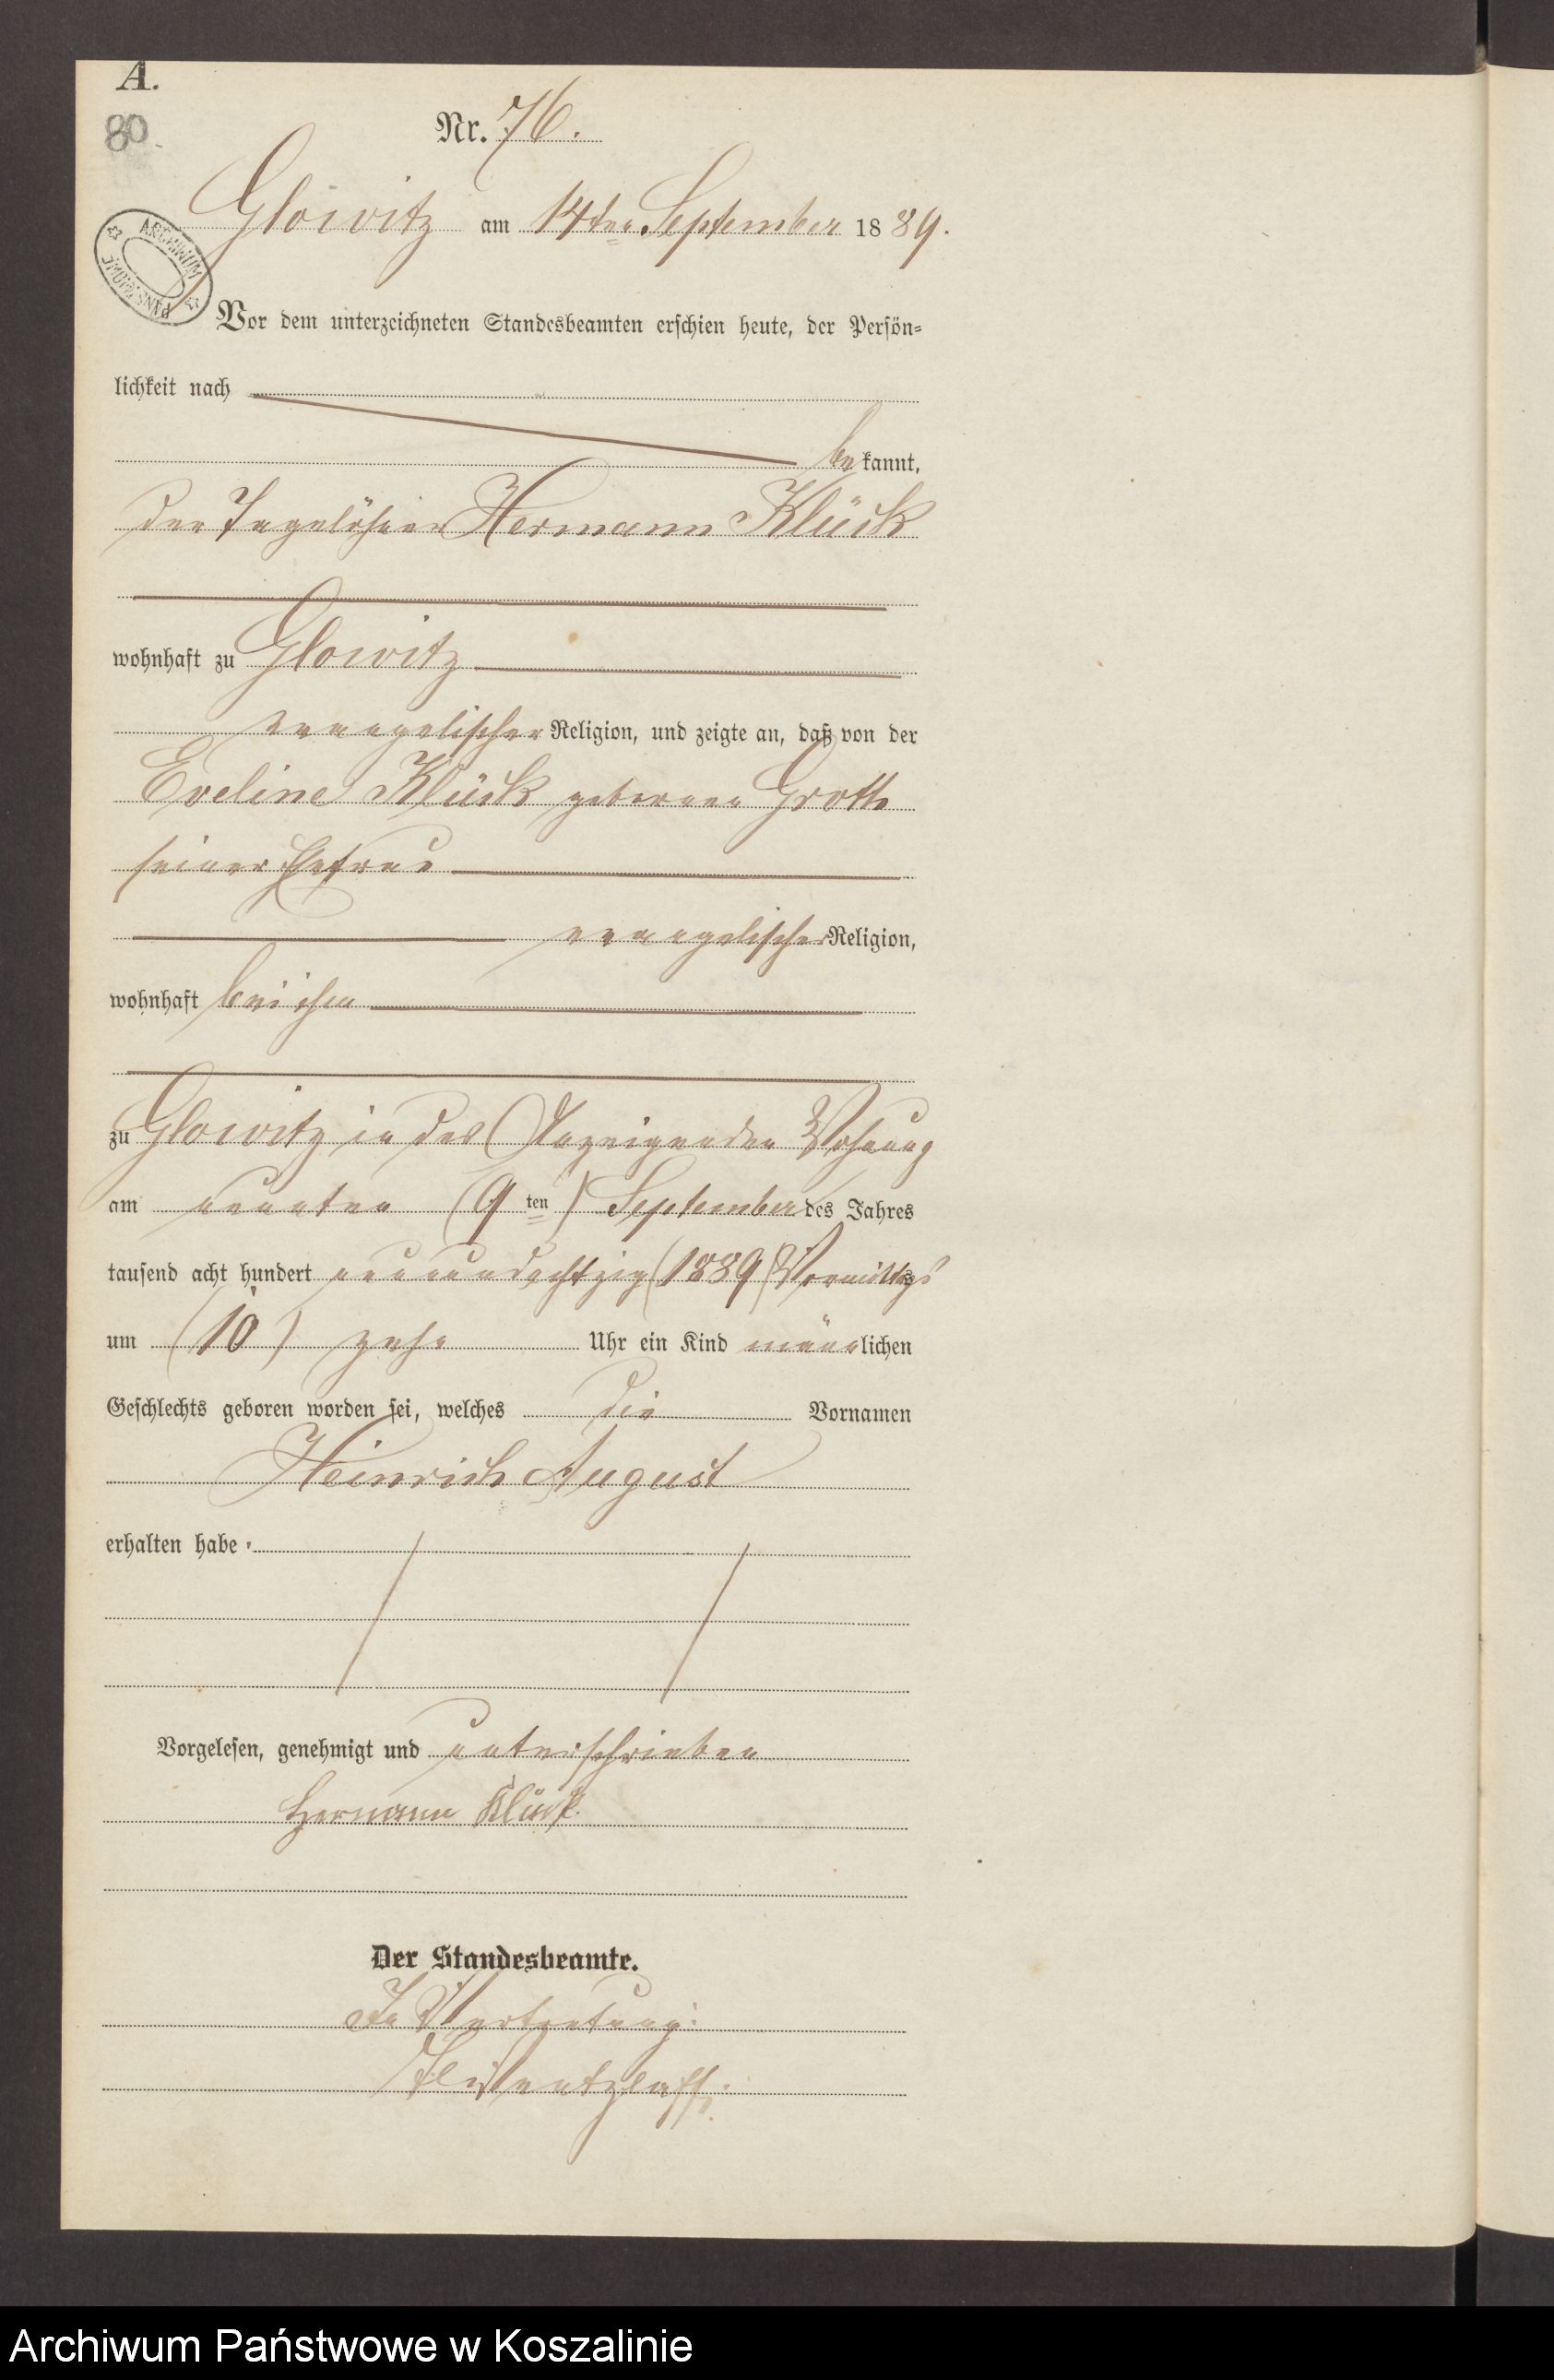 A.
80.
Nr. 76.
Glowitz am 14ten September 1889.
ARCHIWUM PAŃSTWOWE
Vor dem unterzeichneten Standesbeamten erschien heute, der Persön-
lichkeit nach
bekannt,
der Tagelöhner Hermann Klück
wohnhaft zu Glowitz
evangelischer Religion, und zeigte an, daß von der
Eveline Klück geborenen Grotte
seiner Ehefrau
evangelischer Religion,
wohnhaft bei ihm
zu Glowitz in des Anzeigenden Wohnung
am neunten (9ten) September des Jahres
tausend acht hundert neunundachtzig (1889) Vormittags
um (10) zehn Uhr ein Kind männlichen
Geschlechts geboren worden sei, welches die Vornamen
Heinrich August
erhalten habe.
Vorgelesen, genehmigt und unterschrieben
Hermann Klück.
Der Standesbeamte.
In Vertretung:
Archiwum Państwowe w Koszalinie